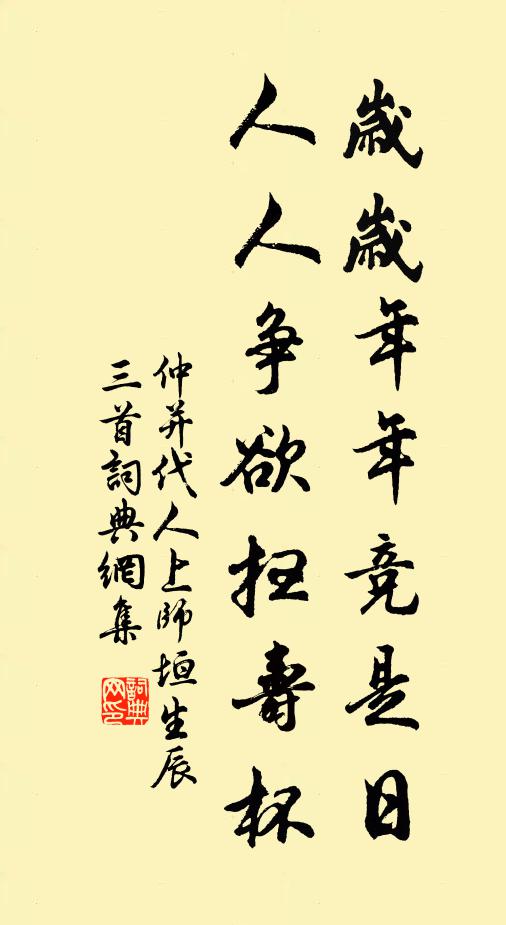 歲歲年年竞是日
人人争欲扫壽杯
仲并代人上師垣生辰
三首詞典網集
詞典
网印